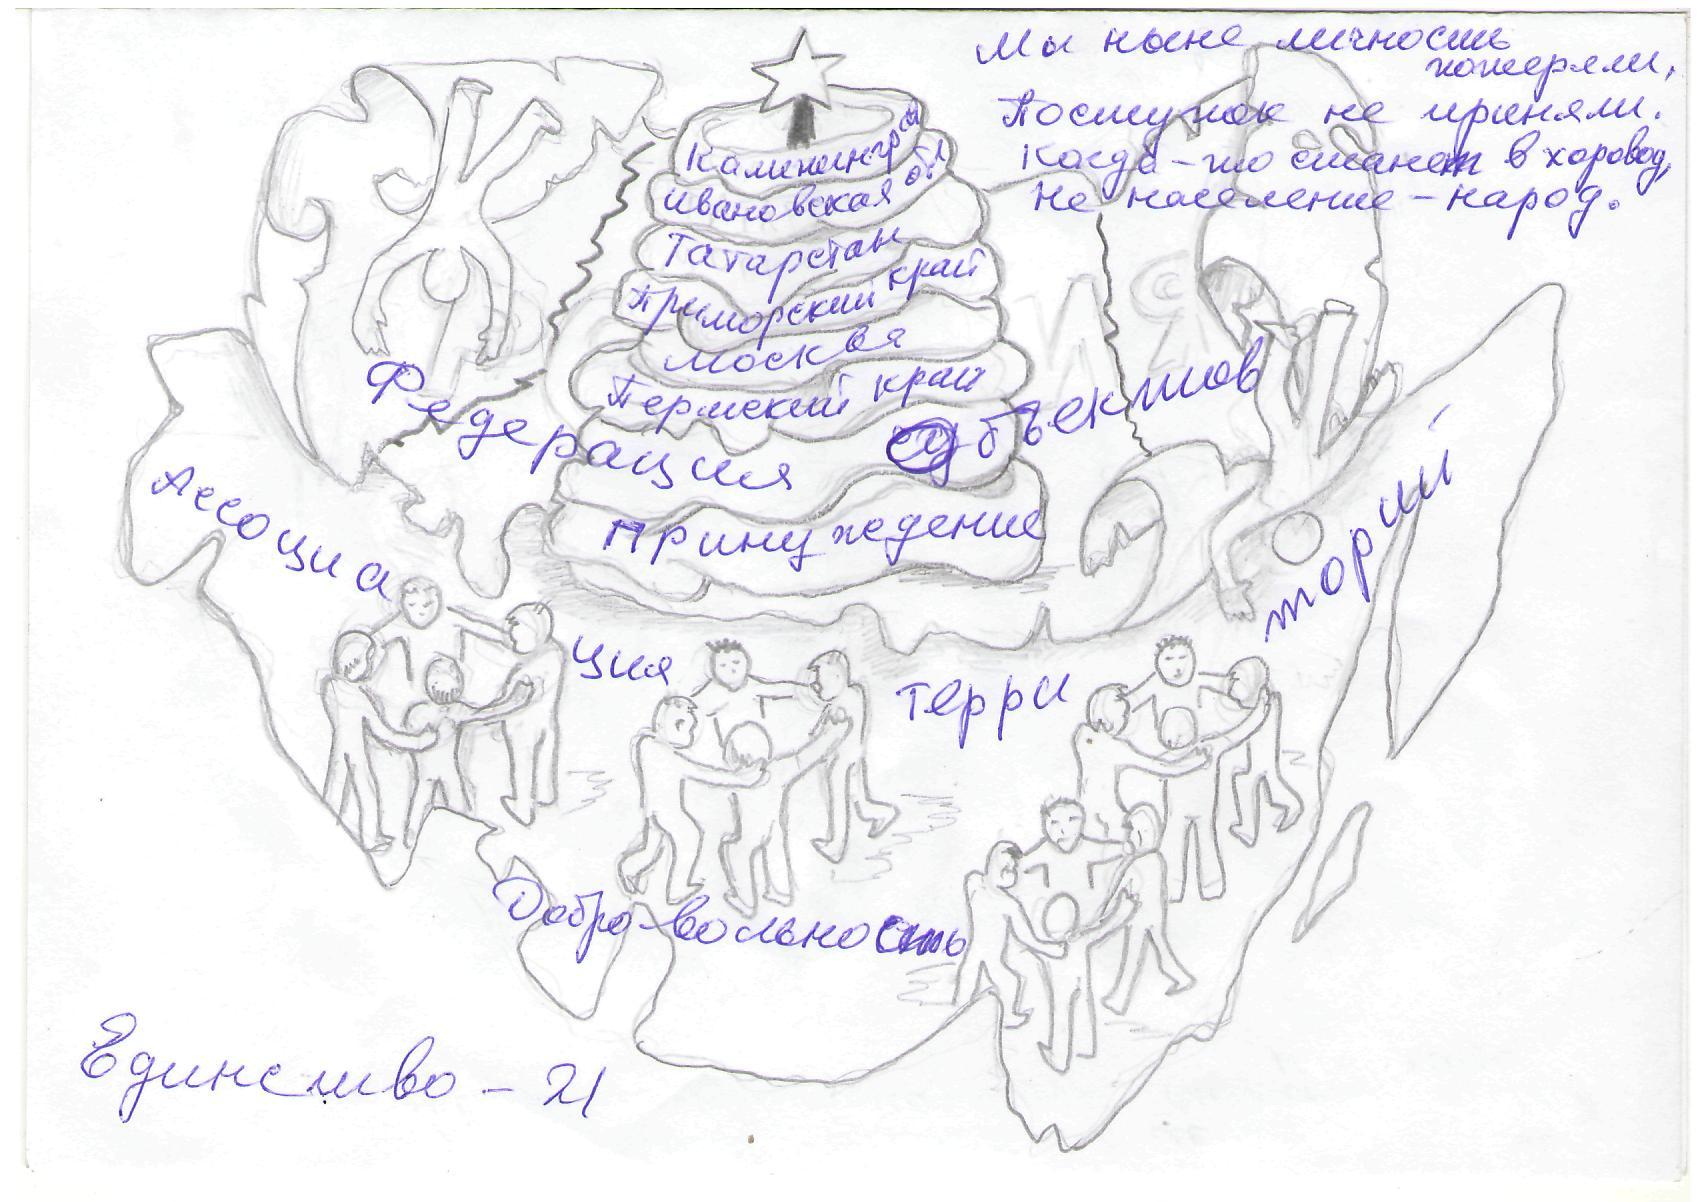 Мы ныне личность
потеряли,
Поступок не приняли.
Когда-то станет в хоровод,
Не население - народ.
Калининградская обл
Ивановская
Татарстан
Приморский край
Москва
Пермский край
Федерация объектов
Принуждение
Ассоциа
ция
терри
торий
Добро-вольность
Единство - 21